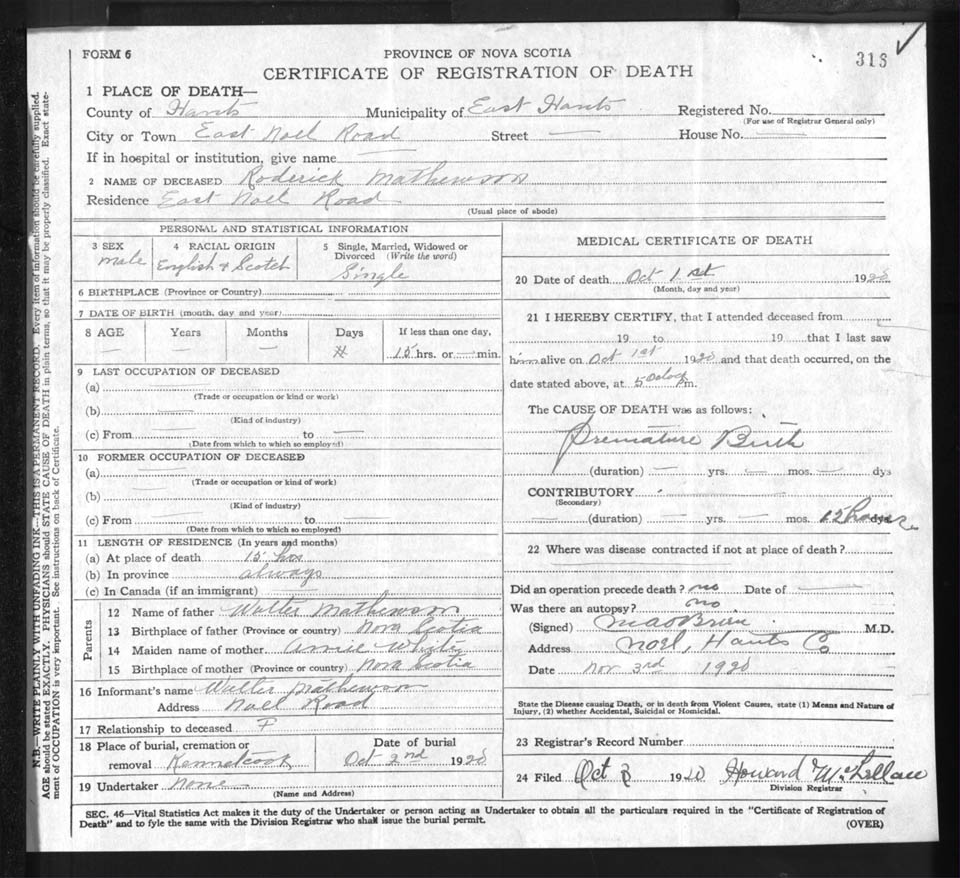 FORM 6
PROVINCE OF NOVA SCOTIA
318
CERTIFICATE OF REGISTRATION OF DEATH
1 PLACE OF DEATH—
County of Hants Municipality of East Hants Registered No.
(For use of Registrar General only)
City or Town East Noel Road Street — House No. —
If in hospital or institution, give name —
2 NAME OF DECEASED Roderick Mathewson
Residence East Noel Road
(Usual place of abode)
PERSONAL AND STATISTICAL INFORMATION
3 SEX male
4 RACIAL ORIGIN English & Scotch
5 Single, Married, Widowed or
Divorced (Write the word)
Single
6 BIRTHPLACE (Province or Country)
7 DATE OF BIRTH (month, day and year)
8 AGE Years Months Days If less than one day,
— — 15 hrs. or — min.
9 LAST OCCUPATION OF DECEASED
(a) —
(Trade or occupation or kind or work)
(b) —
(Kind of industry)
(c) From — to —
(Date from which to which so employed)
10 FORMER OCCUPATION OF DECEASED
(a) —
(Trade or occupation or kind of work)
(b) —
(Kind of industry)
(c) From — to —
(Date from which to which so employed)
11 LENGTH OF RESIDENCE (In years and months)
(a) At place of death 15 hrs
(b) In province always
(c) In Canada (if an immigrant) —
Parents
12 Name of father Walter Mathewson
13 Birthplace of father (Province or country) Nova Scotia
14 Maiden name of mother Annie
15 Birthplace of mother (Province or country) Nova Scotia
16 Informant's name Walter Mathewson
Address Noel Road
17 Relationship to deceased F
18 Place of burial, cremation or
removal Kennetcook
Date of burial
Oct 2nd 192
19 Undertaker None
(Name and Address)
MEDICAL CERTIFICATE OF DEATH
20 Date of death Oct 1st 192
(Month, day and year)
21 I HEREBY CERTIFY, that I attended deceased from
19 to 19 that I last saw
him alive on Oct 1st 192 and that death occurred, on the
date stated above, at 5 Oclock pm.
The CAUSE OF DEATH was as follows:
Premature Birth
(duration) — yrs. — mos. — dys
CONTRIBUTORY
(Secondary)
— (duration) — yrs. — mos. hours
22 Where was disease contracted if not at place of death?
Did an operation precede death? no Date of —
Was there an autopsy? no
(Signed) M.D.
Address Noel, Hants Co
Date Nov 3rd 192
State the Disease causing Death, or in death from Violent Causes, state (1) Means and Nature of
Injury, (2) whether Accidental, Suicidal or Homicidal.
23 Registrar's Record Number
24 Filed Oct 192 Howard McLellan
Division Registrar
SEC. 46—Vital Statistics Act makes it the duty of the Undertaker or person acting as Undertaker to obtain all the particulars required in the "Certificate of Registration of
Death" and to fyle the same with the Division Registrar who shall issue the burial permit.
(OVER)
N.B.—WRITE PLAINLY WITH UNFADING INK—THIS IS A PERMANENT RECORD. Every item of information should be carefully supplied.
AGE should be stated EXACTLY. PHYSICIANS should STATE CAUSE OF DEATH in plain terms, so that it may be properly classified. Exact state-
ment of OCCUPATION is very important. See instructions on back of Certificate.